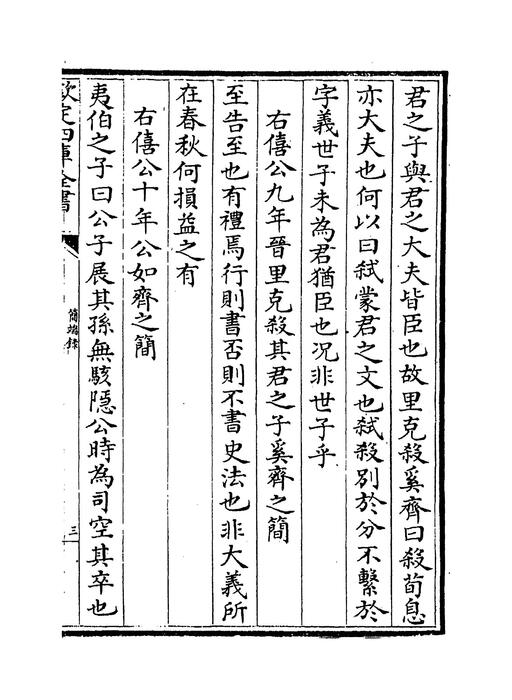 君之子與君之大夫皆臣也故里克殺奚齊曰殺荀息
亦大夫也何以曰弑蒙君之文也弑殺别於分不繫於
字義世子未為君猶臣也况非世子乎
右僖公九年晉里克殺其君之子奚齊之簡
至告至也有禮焉行則書否則不書史法也非大義所
在春秋何損益之有
右僖公十年公如齊之簡
夷伯之子曰公子展其孫無駭隱公時為司空其卒也
欽定四庫全書
簡端録
三